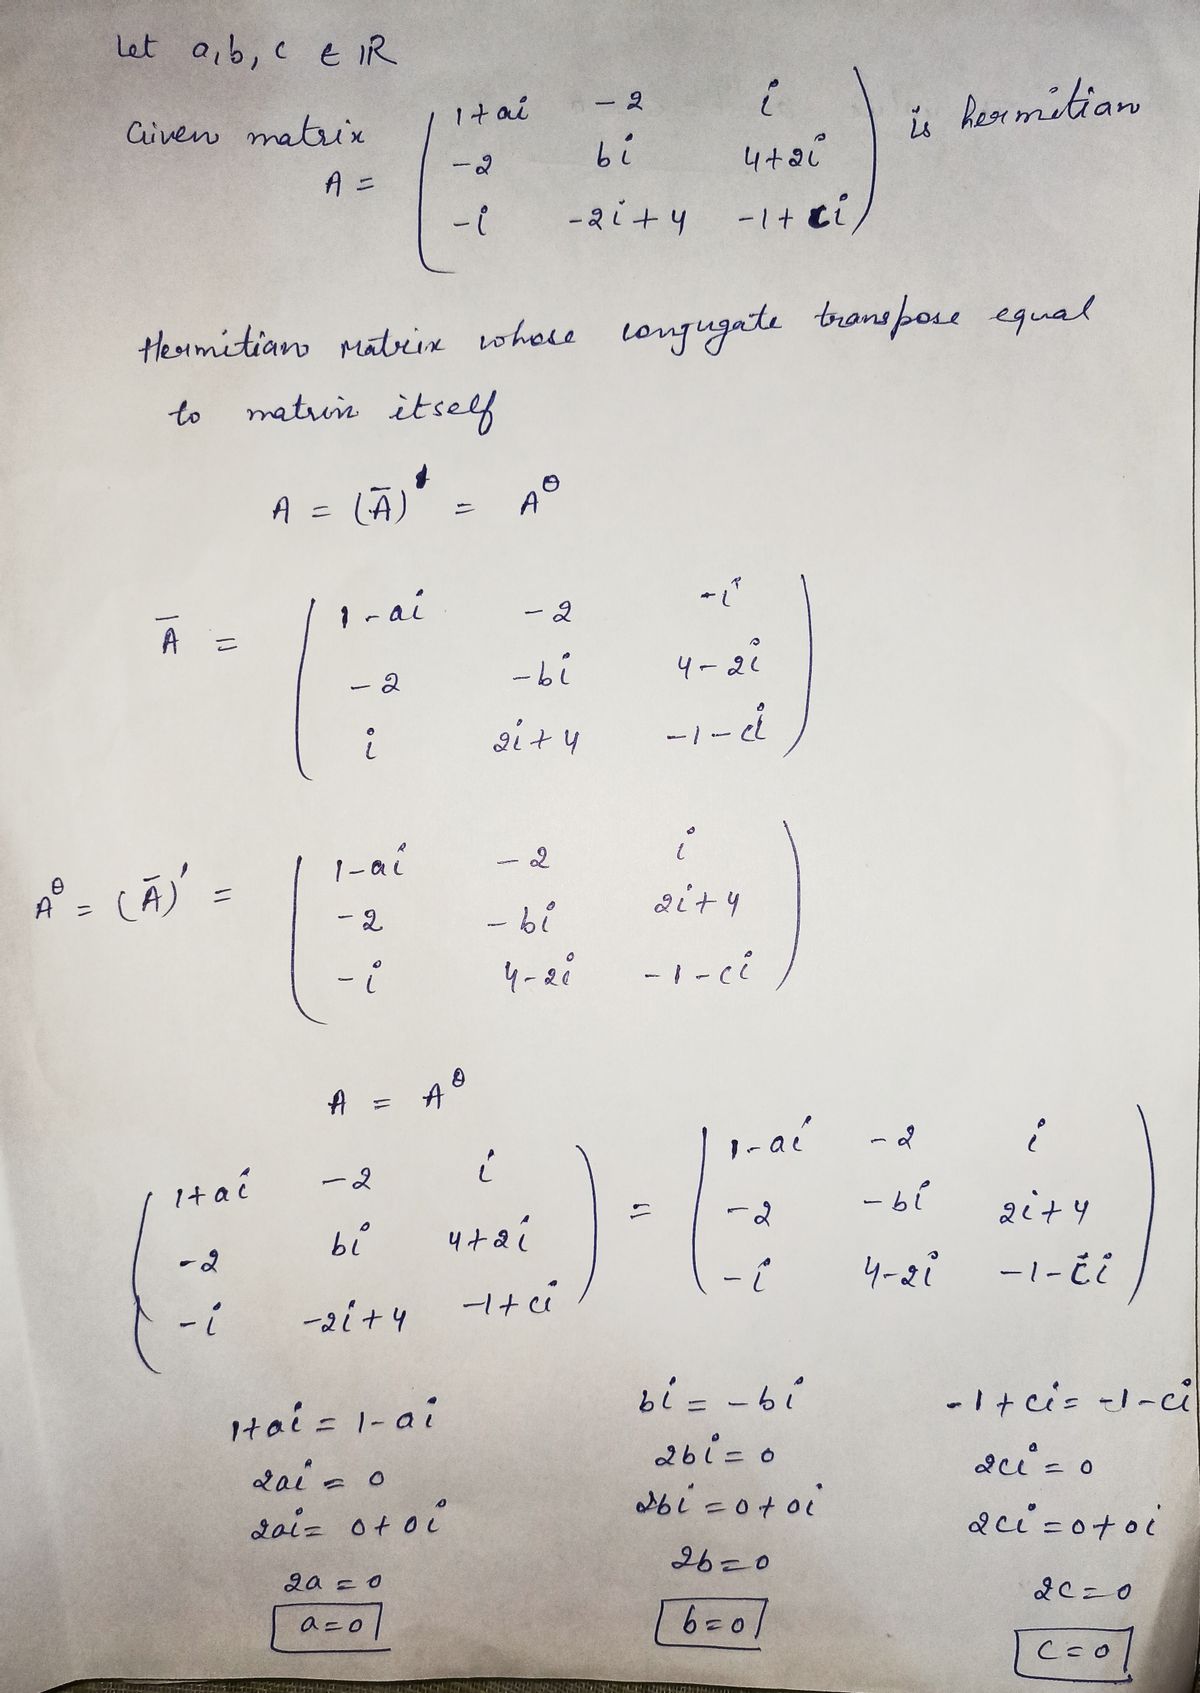 Let a, b, c ∈ IR
Given matrix
A =
( 1+ai  -2  i )
( -2  bi  4+2i )
( -i  -2i+4  -1+ci )
is hermitian
Hermitian matrix whose conjugate transpose equal
to matrix itself
A = (Ā)' = A^θ
Ā =
( 1-ai  -2  -i )
( -2  -bi  4-2i )
( i  2i+4  -1-ci )
A^θ = (Ā)' =
( 1-ai  -2  i )
( -2  -bi  2i+4 )
( -i  4-2i  -1-ci )
A = A^θ
( 1+ai  -2  i ) = ( 1-ai  -2  i )
( -2  bi  4+2i ) ( -2  -bi  2i+4 )
( -i  -2i+4  -1+ci ) ( -i  4-2i  -1-ci )
1+ai = 1-ai
2ai = 0
2ai = 0+0i
2a = 0
a=0
bi = -bi
2bi = 0
2bi = 0+0i
2b=0
b=0
-1+ci = -1-ci
2ci = 0
2ci = 0+0i
2c=0
c=0